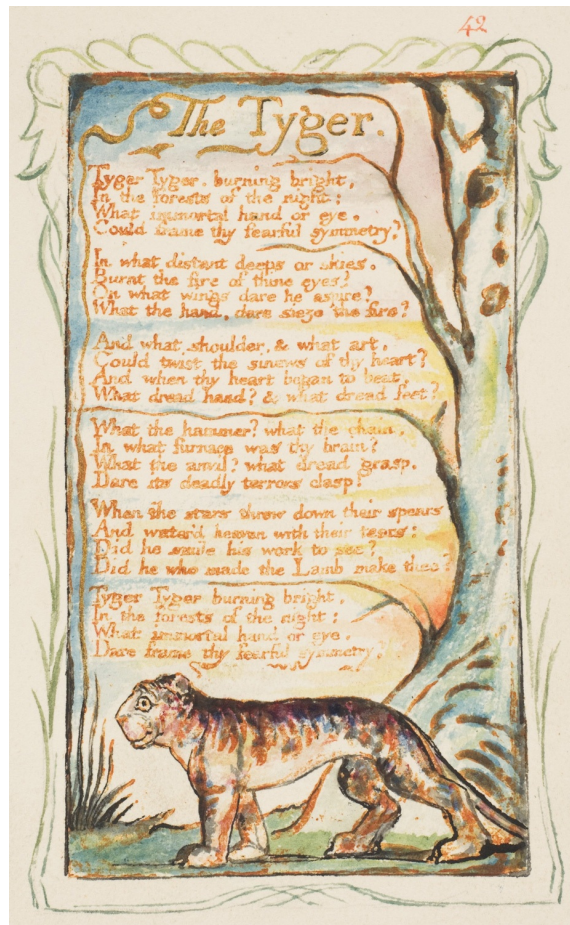 42
The Tyger.
Tyger Tyger. burning bright,
In the forests of the night:
What immortal hand or eye.
Could frame thy fearful symmetry?
In what distant deeps or skies.
Burnt the fire of thine eyes?
On what wings dare he aspire?
What the hand, dare sieze the fire?
And what shoulder, & what art,
Could twist the sinews of thy heart?
And when thy heart began to beat,
What dread hand? & what dread feet?
What the hammer? what the chain,
In what furnace was thy brain?
What the anvil? what dread grasp.
Dare its deadly terrors clasp!
When the stars threw down their spears
And water'd heaven with their tears:
Did he smile his work to see?
Did he who made the Lamb make thee?
Tyger Tyger burning bright,
In the forests of the night:
What immortal hand or eye.
Dare frame thy fearful symmetry.